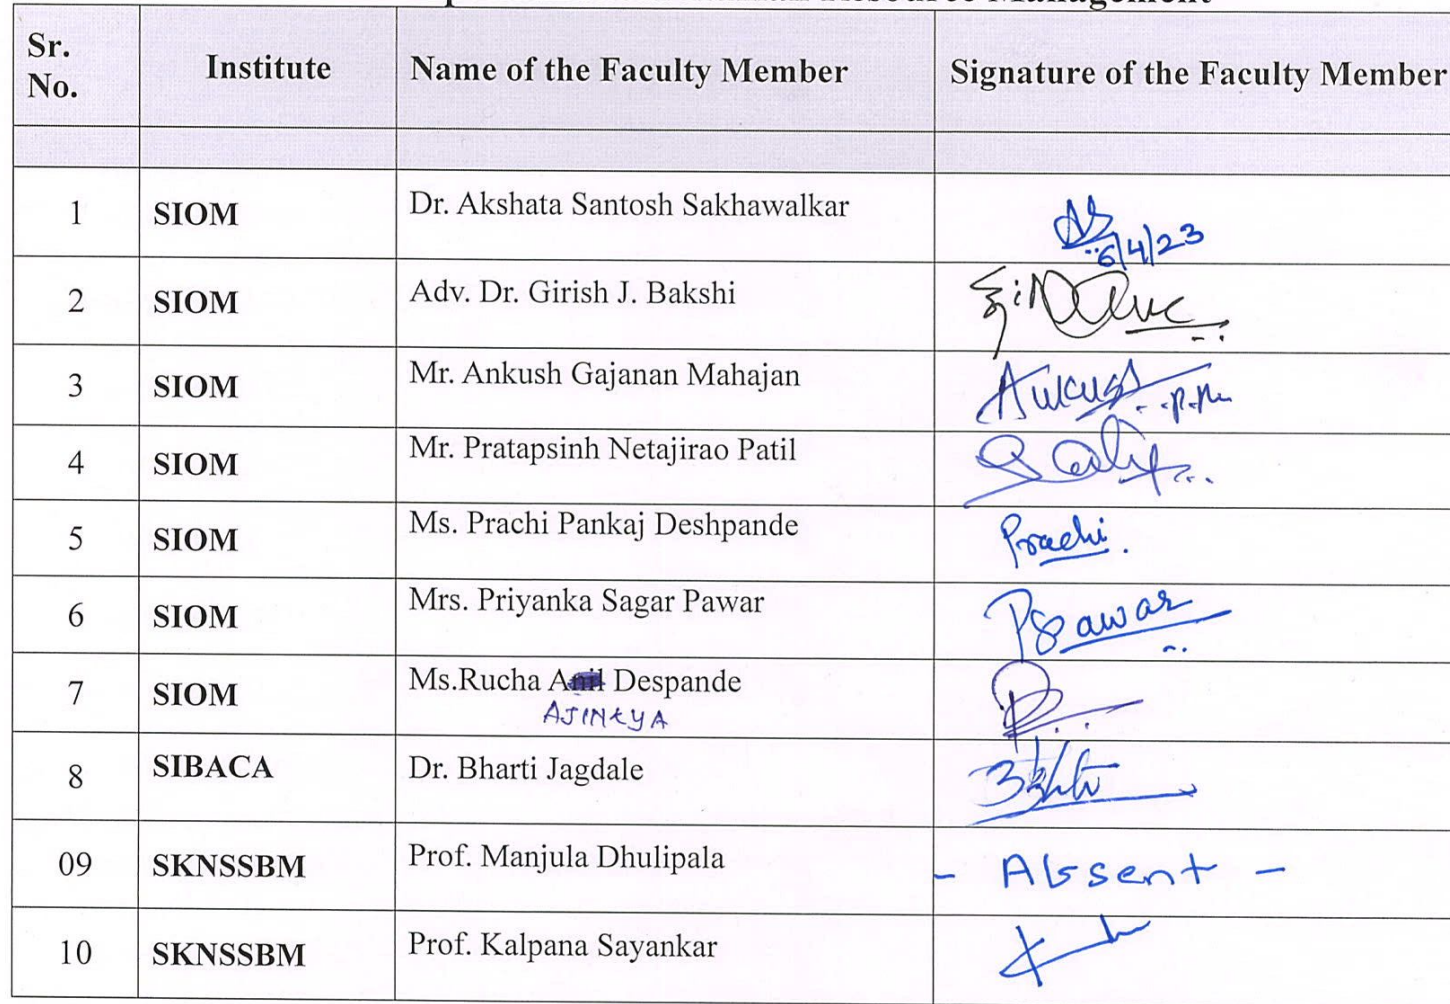 Resource Management
Sr. No. Institute Name of the Faculty Member Signature of the Faculty Member
1 SIOM Dr. Akshata Santosh Sakhawalkar 6/4/23
2 SIOM Adv. Dr. Girish J. Bakshi
3 SIOM Mr. Ankush Gajanan Mahajan
4 SIOM Mr. Pratapsinh Netajirao Patil
5 SIOM Ms. Prachi Pankaj Deshpande Prachi.
6 SIOM Mrs. Priyanka Sagar Pawar PSPawar
7 SIOM Ms.Rucha Anil Despande
AJINKYA
8 SIBACA Dr. Bharti Jagdale
09 SKNSSBM Prof. Manjula Dhulipala - Absent -
10 SKNSSBM Prof. Kalpana Sayankar